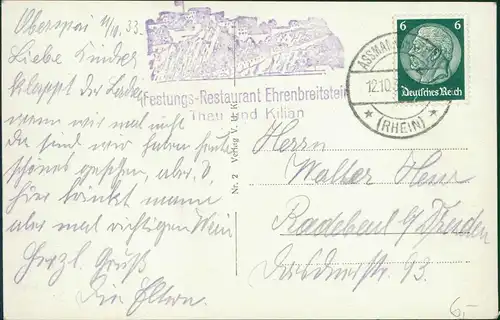 Oberspai 11/10.33.
Liebe Kinder
klappt der Laden
wenn wir mal nicht
da sind wir haben heute
schönes gesehen, aber
hier trinkt mann
aber mal richtigen Wein
Herzl. Gruß
Die Eltern.
Festungs-Restaurant Ehrenbreitstein
Thau und Kilian
Nr. 2 Verlag V. u. K.
ASSMA
12.10.
(RHEIN)
6 6
Deutsches Reich
Herrn
Walter
Radebeul b/Dresden
93.
6,-